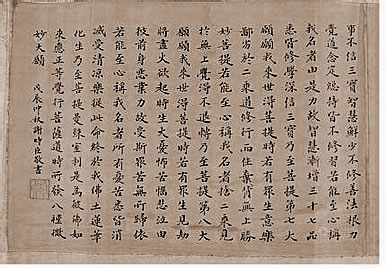 事不信三寶智慧鮮少不修善法根力
覺道念定總持皆不修習若能至心稱
我名者由是力故智慧漸增三十七品
悉皆修學深信三寶乃至菩提第七大
願願我來世得菩提時若有眾生意樂
鄙劣於二乘道修行而住棄背無上勝
妙菩提若能至心稱我名者捨二乘見
於無上覺得不退轉乃至菩提第八大
願願我來世得菩提時若有眾生見劫
將盡火欲起時生大憂怖苦惱悲泣由
彼前身惡業力故受斯眾苦無所歸依
若能至心稱我名者所有憂苦悉皆消
滅受清涼樂從此命終於我佛土蓮華
化生乃至菩提曼殊室利是為彼佛如
來應正等覺行菩薩道時所發八種微
妙大願
戊辰仲秋謝時臣敬書